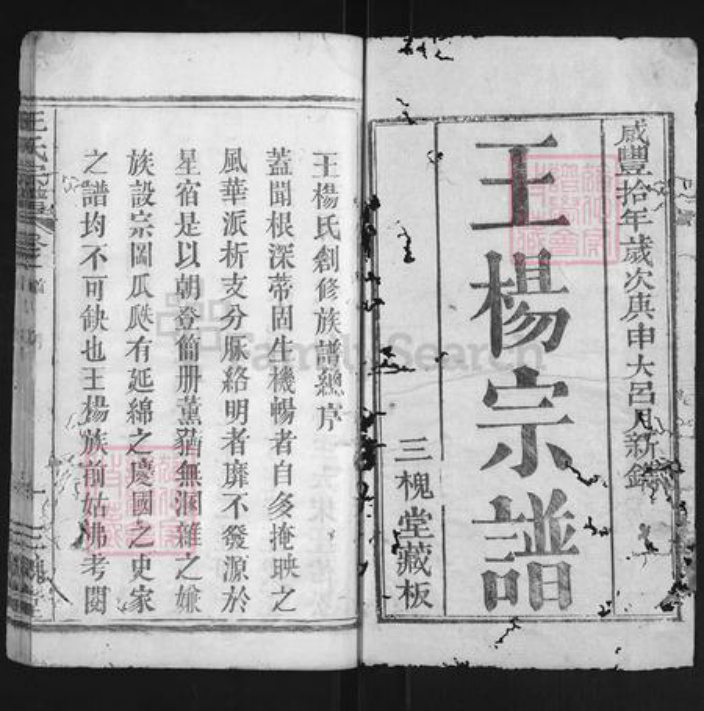 咸豐拾年歲次庚申大呂月新鐫
王楊宗譜
三槐堂藏板
王楊氏創修族譜總序
蓋聞根深蒂固生機暢者自多掩映之
風華派析支分脈絡明者靡不發源於
星宿是以朝登簡册薰蕕無溷雜之嫌
族設宗圖瓜瓞有延綿之慶國之史家
之譜均不可缺也王楊族前姑沸考閱
王氏宗譜
FamilySearch